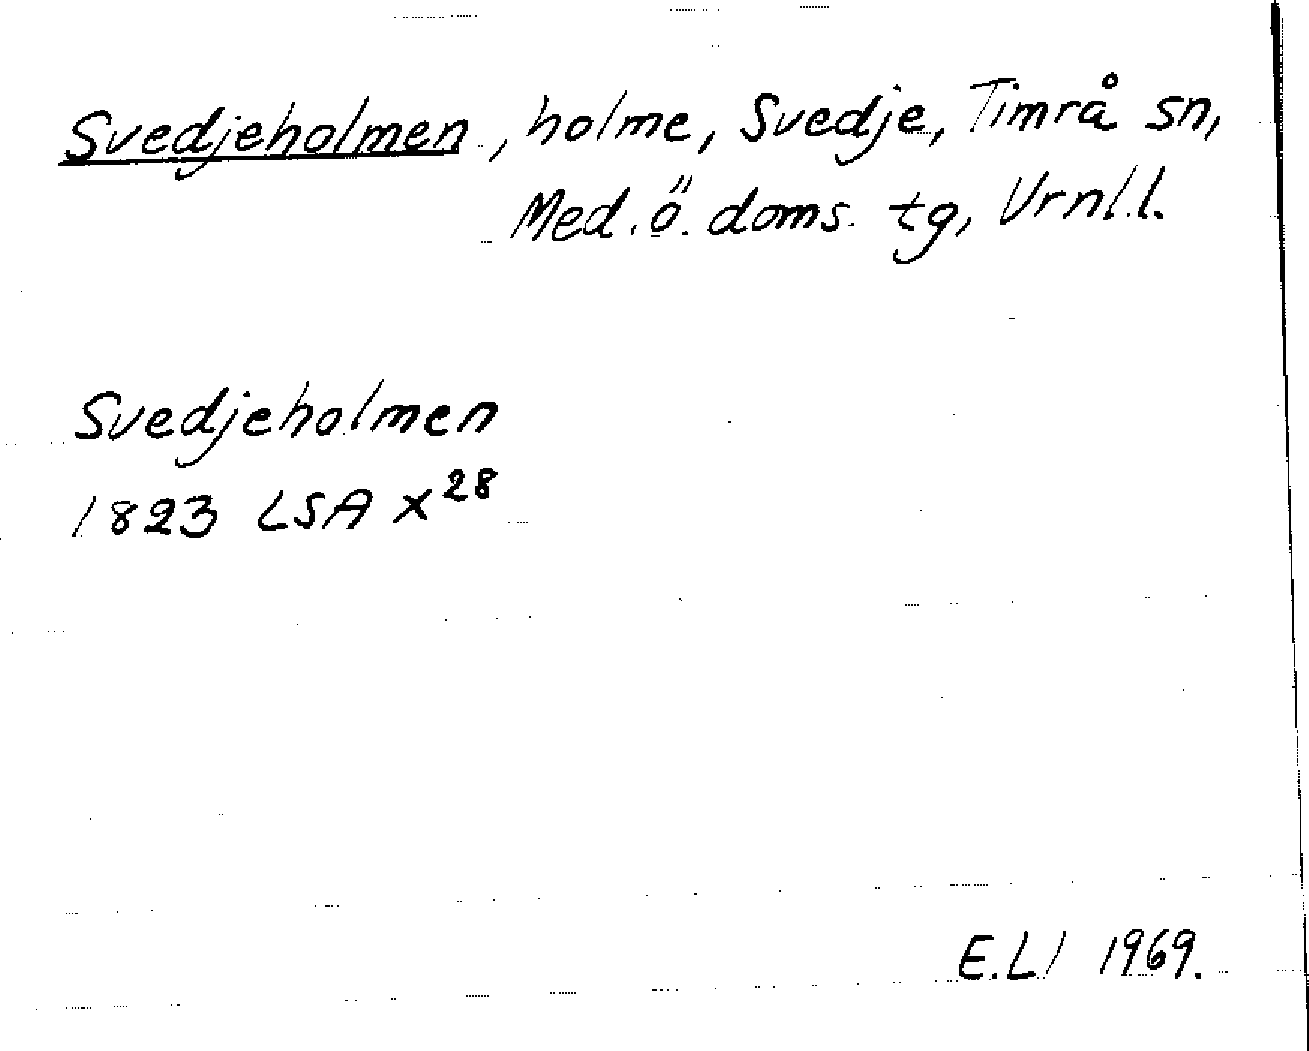 Svedjeholmen, holme, Svedje, Timrå sn,
Med. ö. doms. tg, Vrnl.l.
Svedjeholmen
1823 LSA X28
E.Ll 1969.